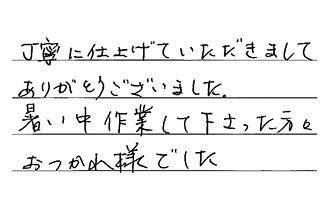 丁寧に仕上げていただきまして
ありがとうございました。
暑い中作業して下さった方々
おつかれ様でした